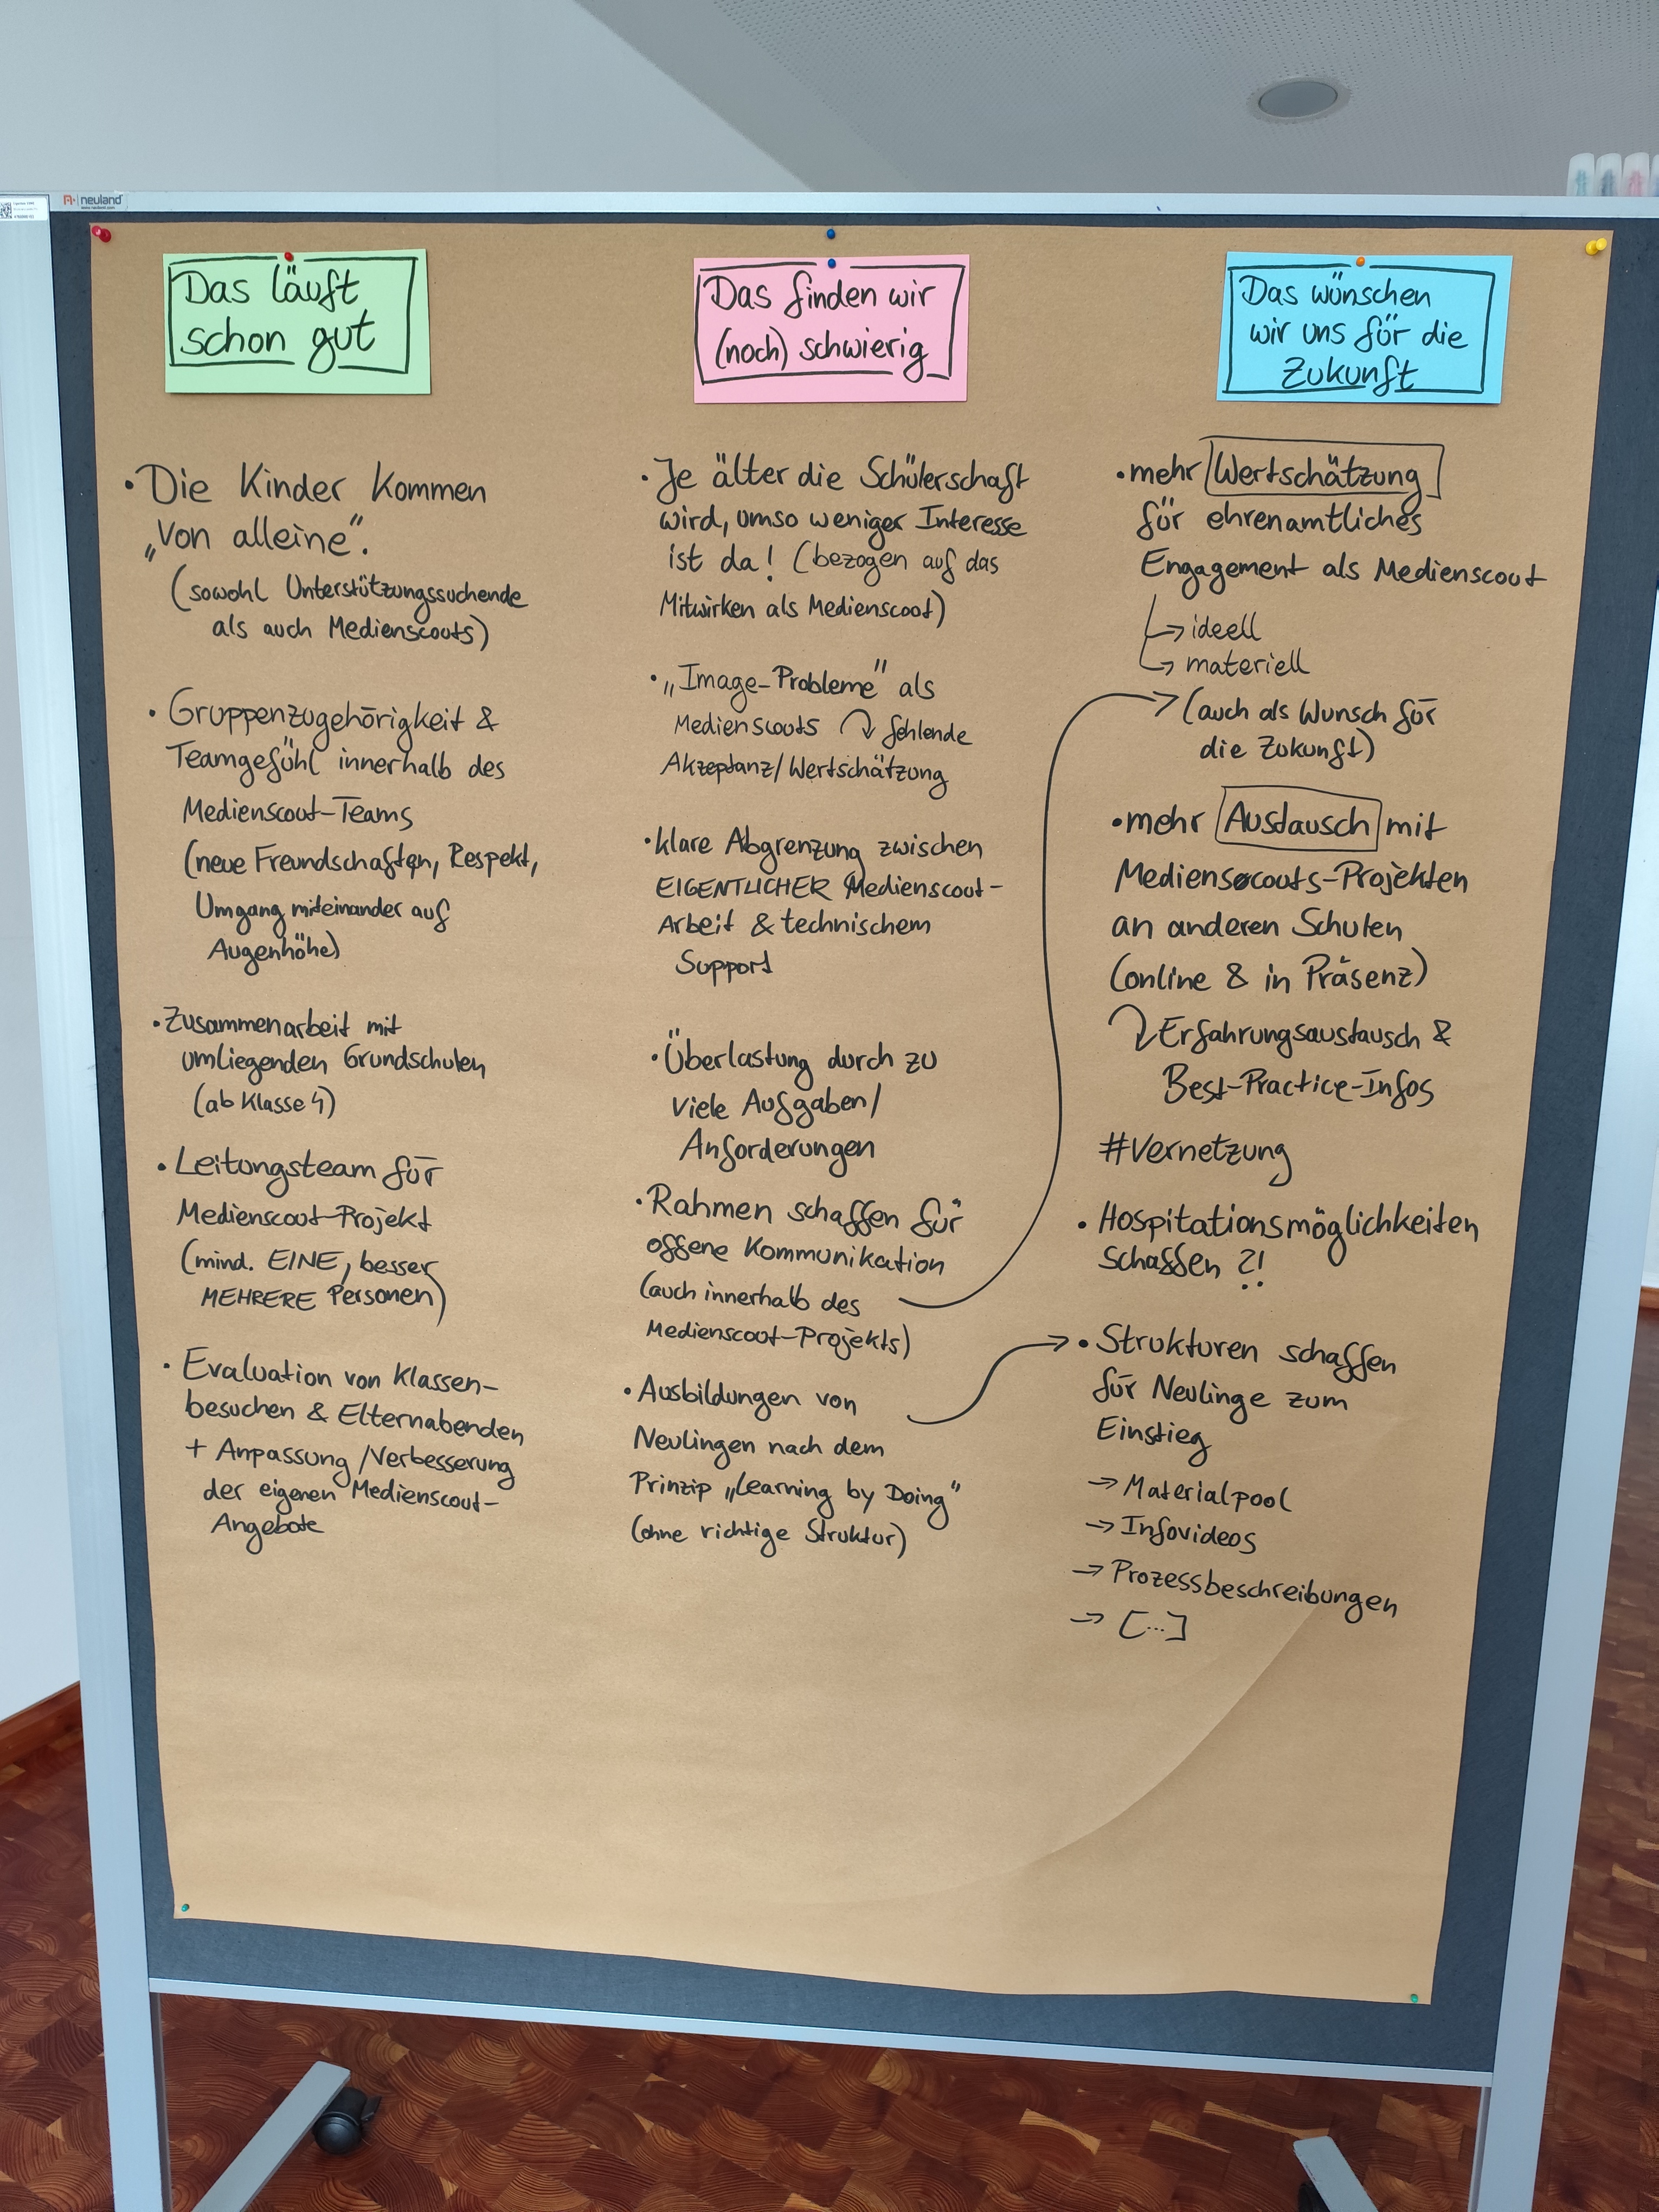 neuland
Das läuft
schon gut
• Die Kinder kommen
„von alleine".
(sowohl Unterstützungssuchende
als auch Medienscouts)
• Gruppenzugehörigkeit &
Teamgefühl innerhalb des
Medienscout-Teams
(neue Freundschaften, Respekt,
Umgang miteinander auf
Augenhöhe)
• Zusammenarbeit mit
umliegenden Grundschulen
(ab Klasse 4)
• Leitungsteam für
Medienscout-Projekt
(mind. EINE, besser
MEHRERE Personen)
• Evaluation von Klassen-
besuchen & Elternabenden
+ Anpassung/Verbesserung
der eigenen Medienscout-
Angebote
Das finden wir
(noch) schwierig
• Je älter die Schülerschaft
wird, umso weniger Interesse
ist da! (bezogen auf das
Mitwirken als Medienscout)
• „Image-Probleme" als
Medienscouts ↴ fehlende
Akzeptanz/Wertschätzung
• klare Abgrenzung zwischen
EIGENTLICHER Medienscout-
Arbeit & technischem
Support
• Überlastung durch zu
viele Aufgaben/
Anforderungen
• Rahmen schaffen für
offene Kommunikation
(auch innerhalb des
Medienscout-Projekts)
• Ausbildungen von
Neulingen nach dem
Prinzip „Learning by Doing"
(ohne richtige Struktur)
Das wünschen
wir uns für die
Zukunft
• mehr Wertschätzung
für ehrenamtliches
Engagement als Medienscout
→ ideell
→ materiell
(auch als Wunsch für
die Zukunft)
• mehr Austausch mit
Medienscouts-Projekten
an anderen Schulen
(online & in Präsenz)
↴ Erfahrungsaustausch &
Best-Practice-Infos
#Vernetzung
• Hospitationsmöglichkeiten
schaffen ?!
• Strukturen schaffen
für Neulinge zum
Einstieg
→ Materialpool
→ Infovideos
→ Prozessbeschreibungen
→ [...]